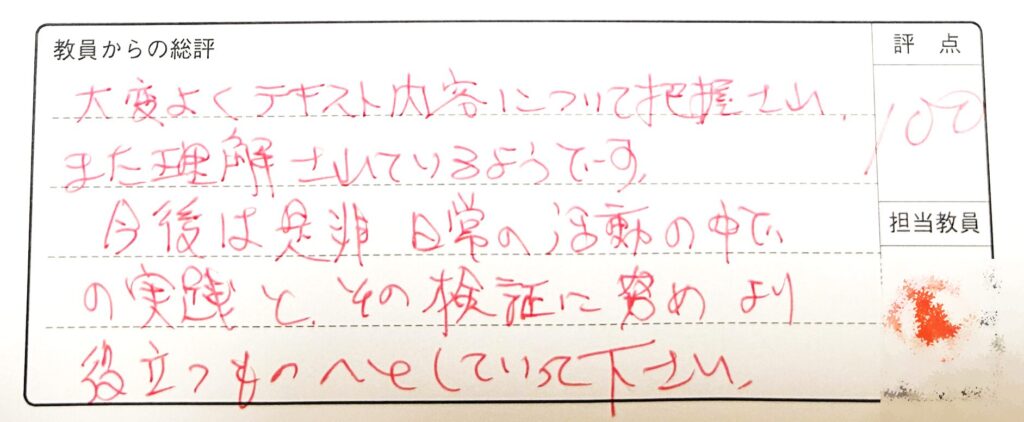 教員からの総評
評 点
大変よくテキスト内容について把握され、
100
また理解されているようです。
今後は是非日常の活動の中で
担当教員
の実践と、その検証に努めより
役立つものへとしていって下さい。